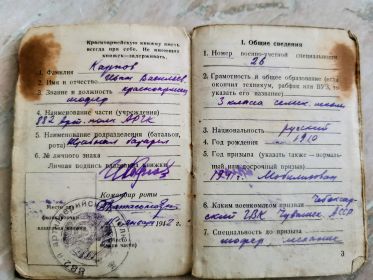 Красноармейскую книжку иметь
всегда при себе. Не имеющих
книжек—задерживать.
1. Фамилия Карпов
2. Имя и отчество Иван Васильев
3. Звание и должность красноармеец
шофер
4. Наименование части (учреждения)
882 арт. полк
5. Наименование подразделения (батальон,
рота)
6. № личного знака
Личная подпись владельца книжки
Командир роты
Место
1942 г.
I. Общие сведения
1. Номер военно-учетной специальности
26
2. Грамотность и общее образование (если
окончил техникум, рабфак или ВУЗ, то
указать его название)
3 класса сельск. школы
3. Национальность русский
4. Год рождения 1910
5. Год призыва (указать также — нормаль-
ный или досрочный призыв)
1941 г. Мобилизован
6. Каким военкоматом призван Чебоксар-
ский ГВК Чувашск. АССР
7. Специальность до призыва
шофер,
3